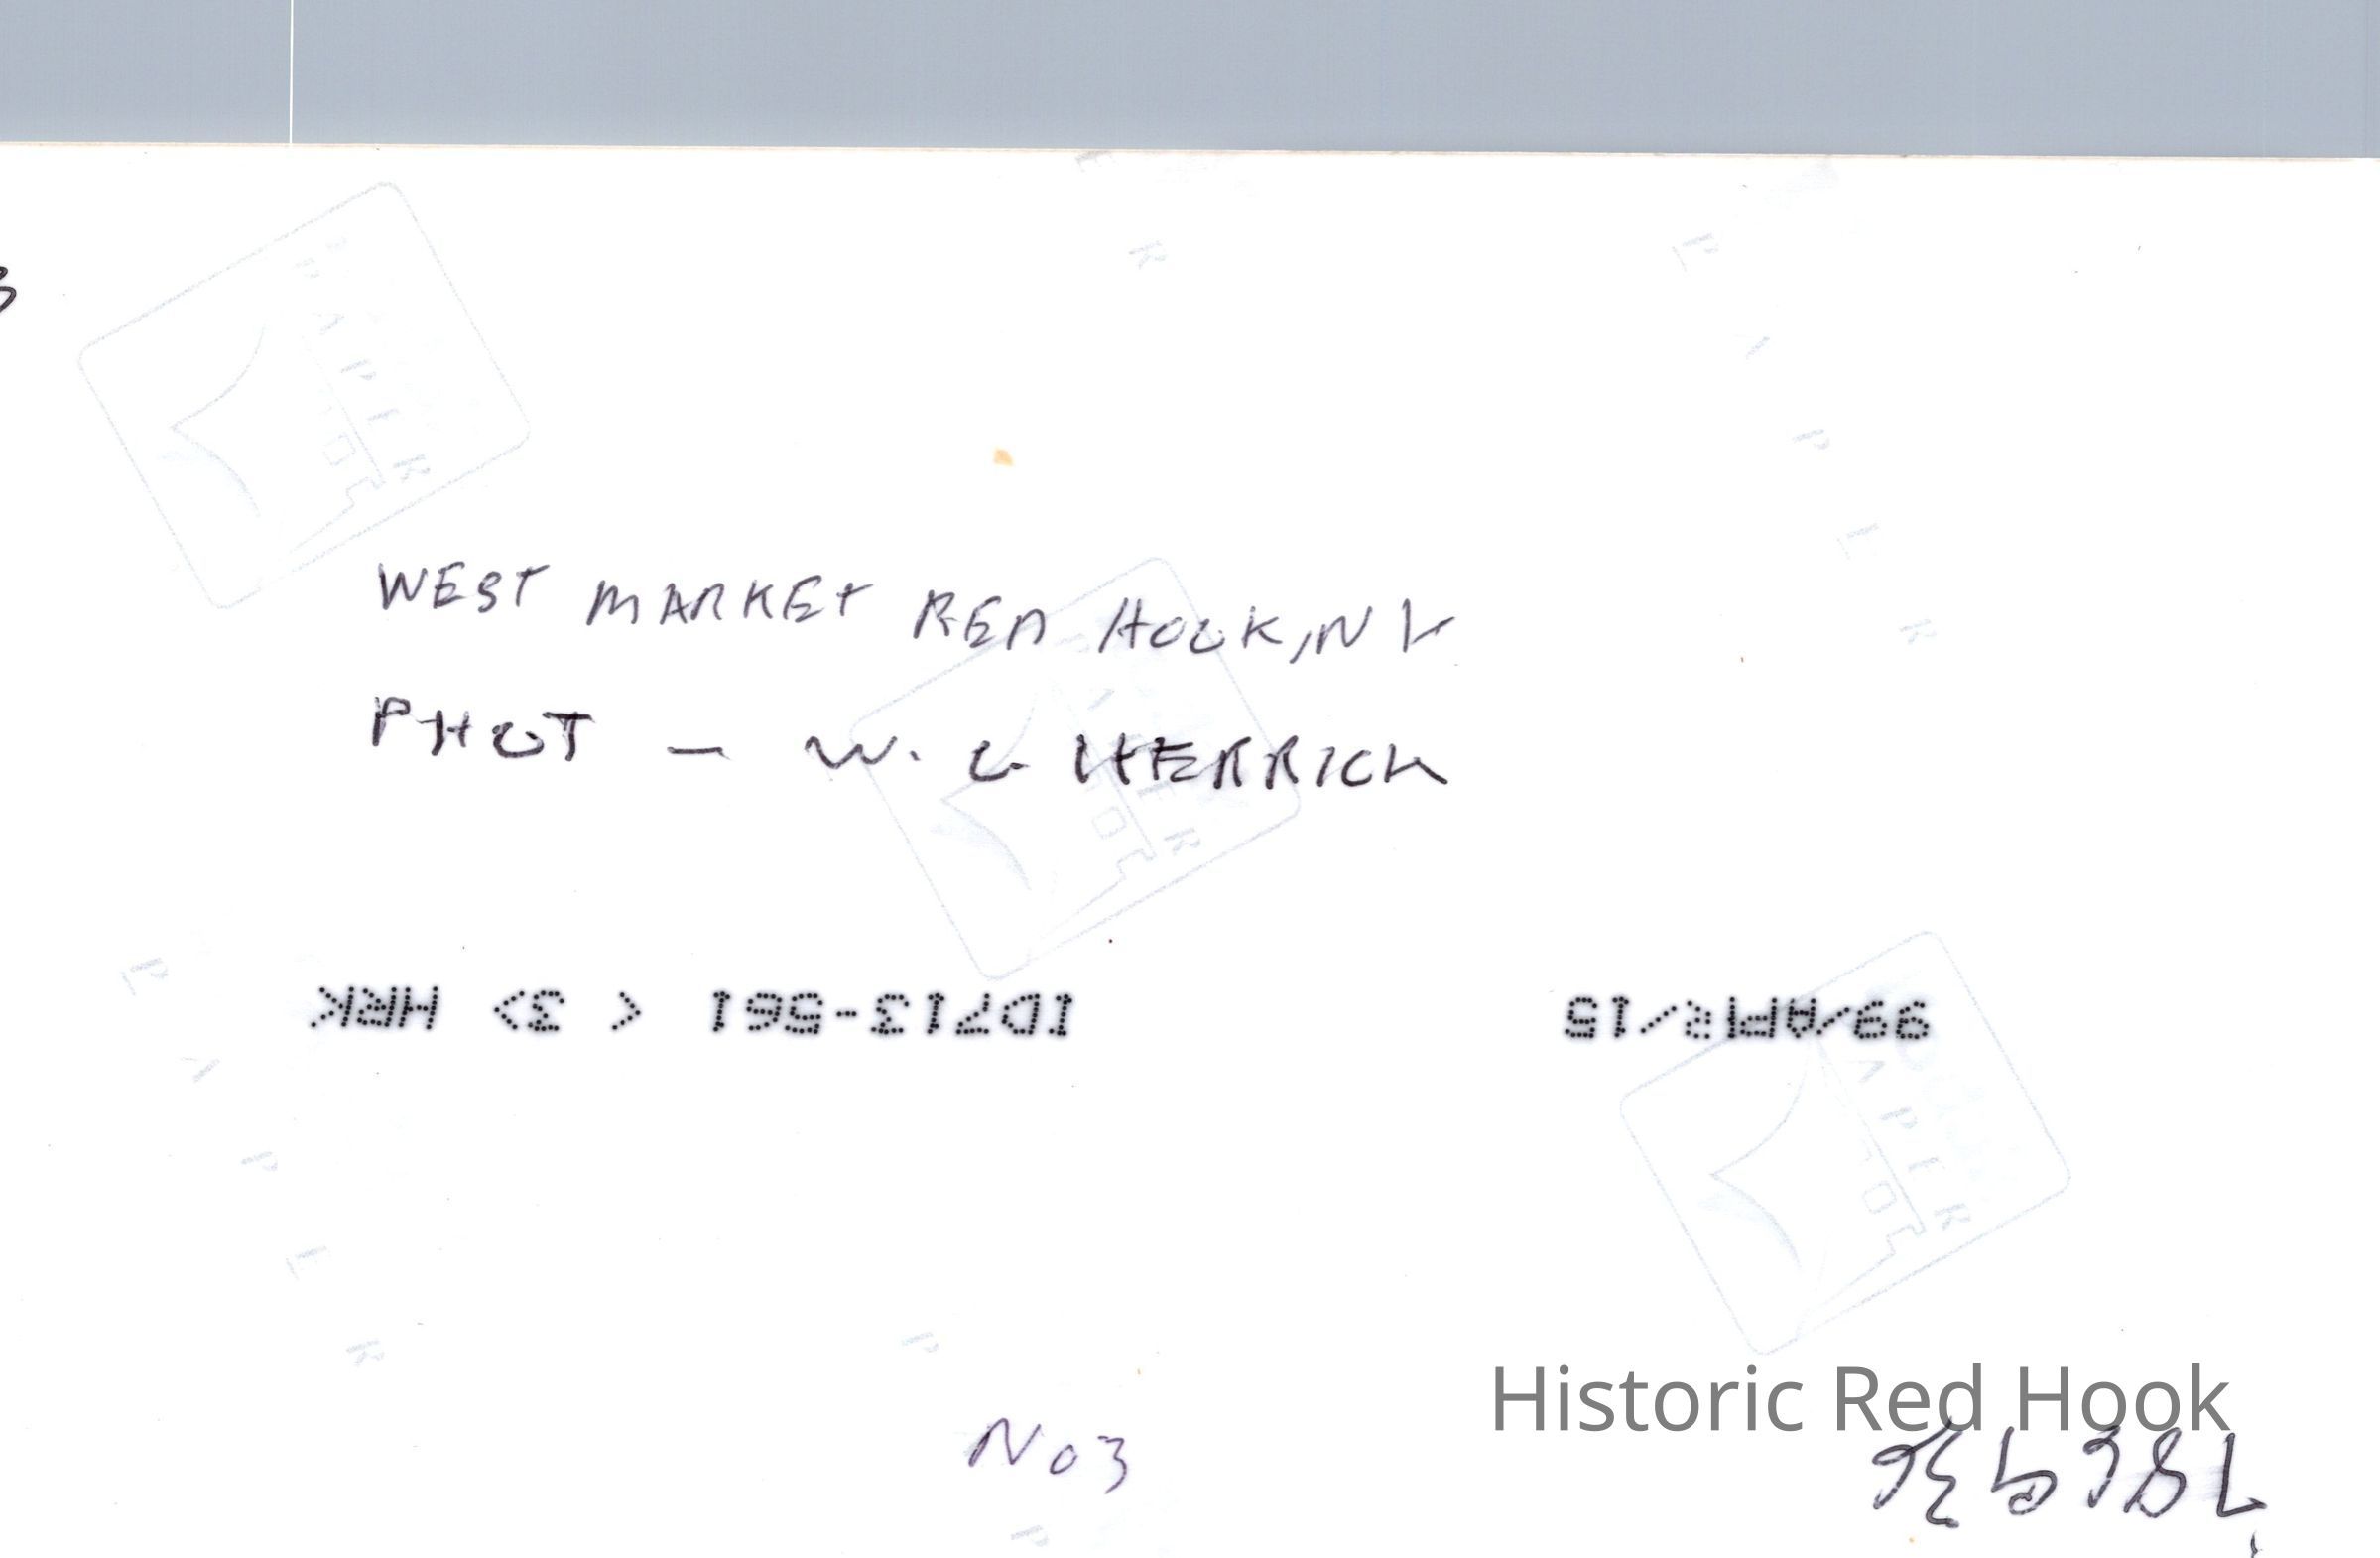 WEST MARKET RED HOOK, NY
PHOT - W. HERRICK
99/APR/15 ID713-561 < 3> HRK
Historic Red Hook
No 3
PAPER